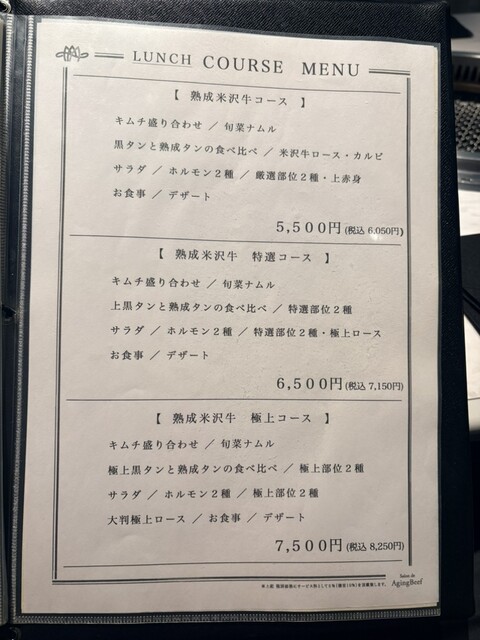 LUNCH COURSE MENU
【 熟成米沢牛コース 】
キムチ盛り合わせ ／ 旬菜ナムル
黒タンと熟成タンの食べ比べ ／ 米沢牛ロース・カルビ
サラダ ／ ホルモン２種 ／ 厳選部位２種・上赤身
お食事 ／ デザート
5,500円(税込 6,050円)
【 熟成米沢牛 特選コース 】
キムチ盛り合わせ ／ 旬菜ナムル
上黒タンと熟成タンの食べ比べ ／ 特選部位２種
サラダ ／ ホルモン２種 ／ 特選部位２種・極上ロース
お食事 ／ デザート
6,500円(税込 7,150円)
【 熟成米沢牛 極上コース 】
キムチ盛り合わせ ／ 旬菜ナムル
極上黒タンと熟成タンの食べ比べ ／ 極上部位２種
サラダ ／ ホルモン２種 ／ 極上部位２種
大判極上ロース ／ お食事 ／ デザート
7,500円(税込 8,250円)
Salon de
AgingBeef